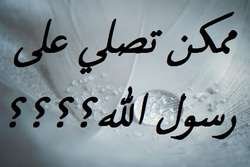 ممكن تصلي على
رسول الله؟؟؟؟